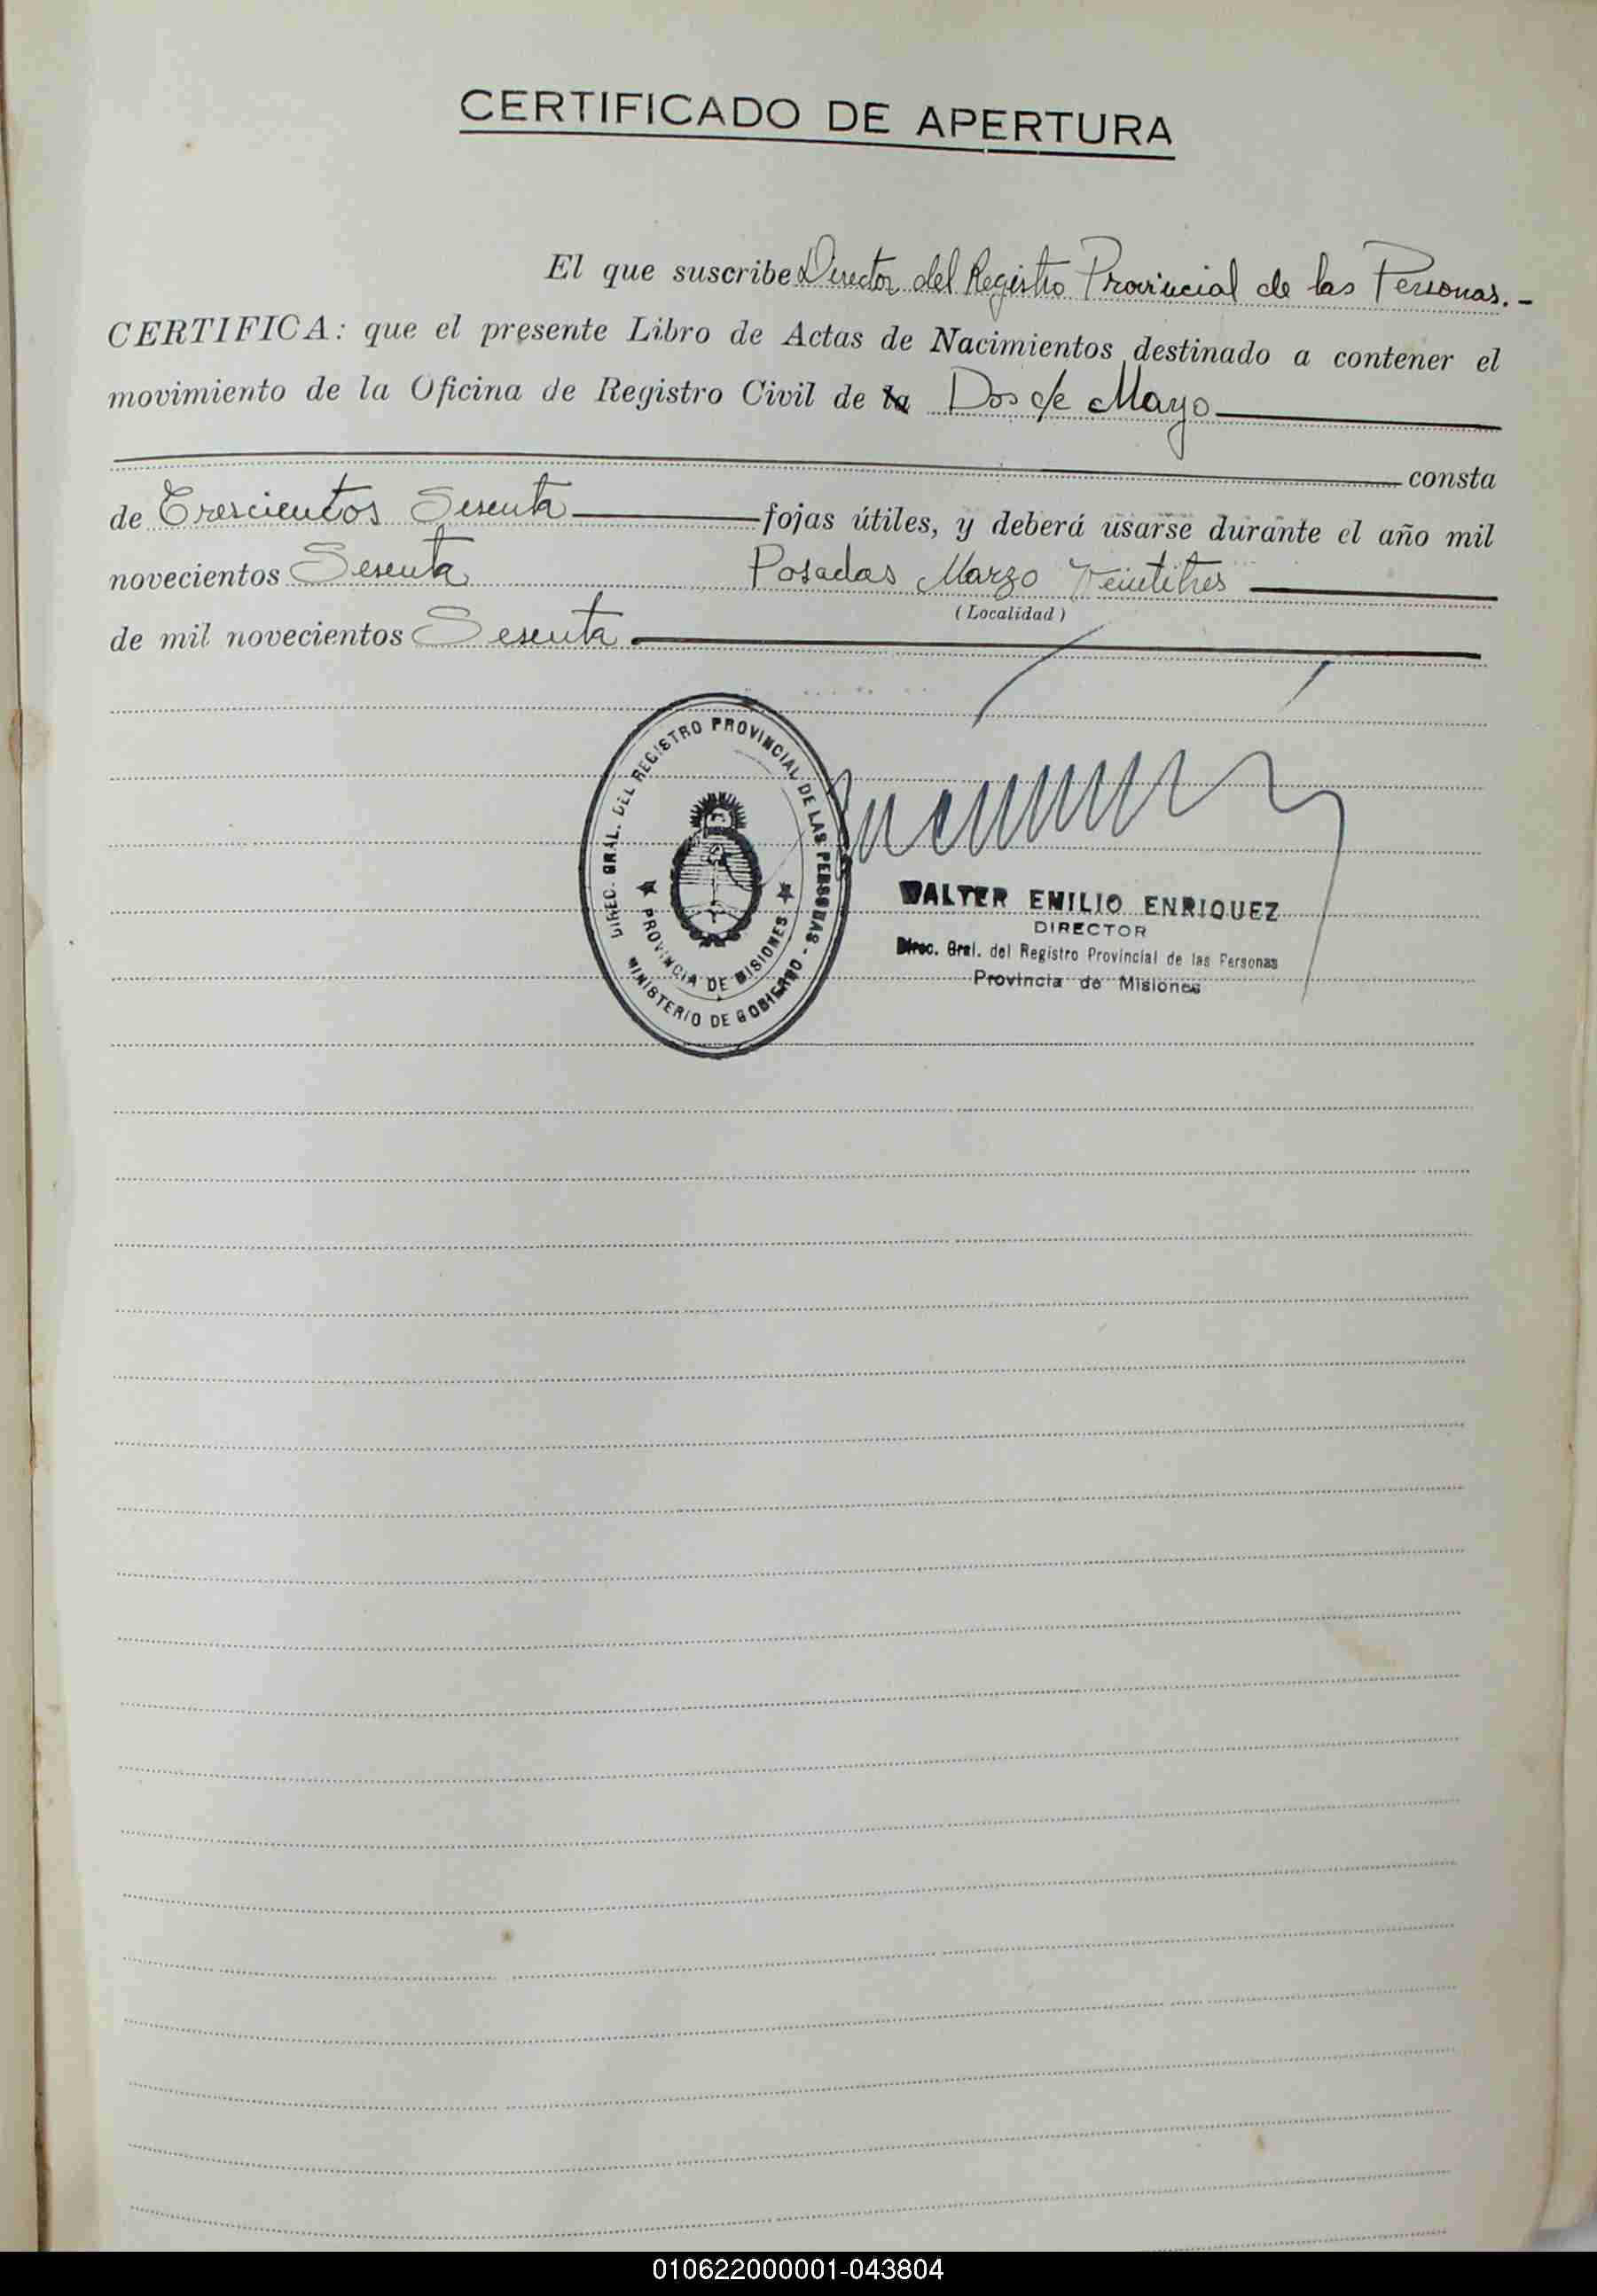 CERTIFICADO DE APERTURA
El que suscribe Director del Registro Provincial de las Personas.-
CERTIFICA: que el presente Libro de Actas de Nacimientos destinado a contener el
movimiento de la Oficina de Registro Civil de la Dos de Mayo
consta
de Trescientos Sesenta fojas útiles, y deberá usarse durante el año mil
novecientos Sesenta Posadas Marzo Veintitres
(Localidad)
de mil novecientos Sesenta
DIREC. GRAL. DEL REGISTRO PROVINCIAL DE LAS PERSONAS -
MINISTERIO DE GOBIERNO -
PROVINCIA DE MISIONES
WALTER EMILIO ENRIQUEZ
DIRECTOR
Direc. Gral. del Registro Provincial de las Personas
Provincia de Misiones
010622000001-043804